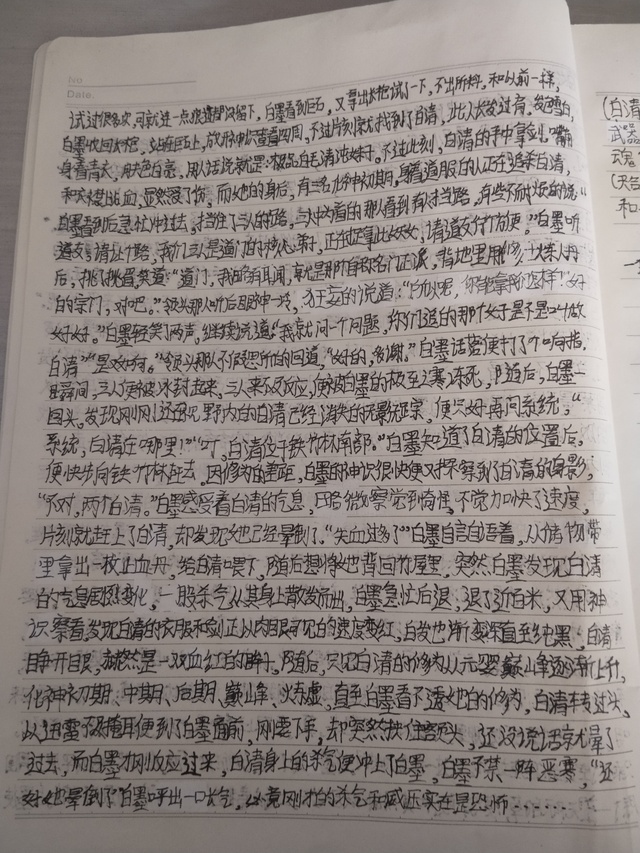 No
Date.
试过很多次,可就连一点痕迹都没留下,白墨看到巨石,又拿出试了一下,不出所料,和以前一样,
白墨收回,站在巨石上,放形神识查看四周,不过片刻就找到了白清,此人长发过肩,发色雪白,
身着青衣,肤色白亮,用人话说就是:极品白毛清冷妹子。不过此刻,白清的手中拿剑,嘴角
和衣襟处血,显然受了伤,而她的身后,有三名化神初期,身着道服的人正在追杀白清,
白墨看到后急忙冲过去,挡住了三人的路,三人中为首的那人看到有人挡路,有些不耐烦的说“
道友,请让个路,我们三人是道门的核心弟子,正在捉拿此妖女,请道友行个方便。”白墨听
后,挑了挑眉,笑道:“道门,我略有耳闻,就是那个自称名门正派,背地里用修士炼人丹
的宗门,对吧。”领头那人听后眼神一冷,狂妄的说道:“是又如何,你能拿我们怎样?”好
好好。”白墨轻笑了两声,继续说道“我就问一个问题,你们追的那个女子是不是叫做
白清”“是又如何。”领头那人不假思所的回道,“好的,多谢。”白墨话罢便打了个响指,
瞬间,三人便被冰封起来,三人来不及反应,便被白墨的极至之寒冻死,随后,白墨一
回头,发现刚刚还在视野内的白清已经消失的无影无踪,便只好再问系统,“
系统,白清在哪里!”“叮,白清位于铁竹林南部。”白墨知道了白清的位置后,
便快步向铁竹林赶去,因修为的差距,白墨的神识很快便又探察到了白清的身影,
“不对,两个白清。”白墨感受着白清的气息,略微察觉到奇怪,不觉加快了速度,
片刻就赶上了白清,却发现她已经晕倒了“失血过多了”白墨自言自语着,从储物带
里拿出一枚止血丹,给白清喂下,随后想将她背回竹屋里,突然白墨发现白清
的气息居然变化,一股杀气从其身上散发而出,白墨急忙后退,退了近百米,又用神
识察看,发现白清的衣服和剑正以肉眼可见的速度变红,白发也渐变深直至纯黑,白清
睁开眼,赫然是一双血红的眸子,随后,只见白清的修为从元婴巅峰逐渐上升,
化神初期、中期、后期、巅峰、炼虚,直至白墨看不透她的修为,白清转过头,
以迅雷不及掩耳便到了白墨面前,刚要下手,却突然扶住额头,还没说话就晕了
过去,而白墨才刚反应过来,白清身上的杀气便冲上了白墨,白墨不禁一阵恶寒,“还
好她晕倒了”白墨呼出一口气,必竟刚才的杀气和威压实在是恐怖……
(白清
武器
魂
和